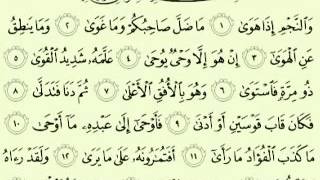 وَٱلنَّجْمِ إِذَا هَوَىٰ ١ مَا ضَلَّ صَاحِبُكُمْ وَمَا غَوَىٰ ٢ وَمَا يَنطِقُ
عَنِ ٱلْهَوَىٰٓ ٣ إِنْ هُوَ إِلَّا وَحْىٌ يُوحَىٰ ٤ عَلَّمَهُۥ شَدِيدُ ٱلْقُوَىٰ ٥
ذُو مِرَّةٍ فَٱسْتَوَىٰ ٦ وَهُوَ بِٱلْأُفُقِ ٱلْأَعْلَىٰ ٧ ثُمَّ دَنَا فَتَدَلَّىٰ ٨
فَكَانَ قَابَ قَوْسَيْنِ أَوْ أَدْنَىٰ ٩ فَأَوْحَىٰٓ إِلَىٰ عَبْدِهِۦ مَآ أَوْحَىٰ ١٠
مَا كَذَبَ ٱلْفُؤَادُ مَا رَأَىٰٓ ١١ أَفَتُمَٰرُونَهُۥ عَلَىٰ مَا يَرَىٰ ١٢ وَلَقَدْ رَءَاهُ